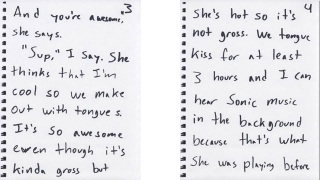 3
And you're awesome,"
she says.
"Sup," I say. She
thinks that I'm
cool so we make
out with tongues.
It's so awesome
even though it's
kinda gross but
4
She's hot so it's
not gross. We tongue
kiss for at least
3 hours and I can
hear Sonic music
in the background
because that's what
she was playing before